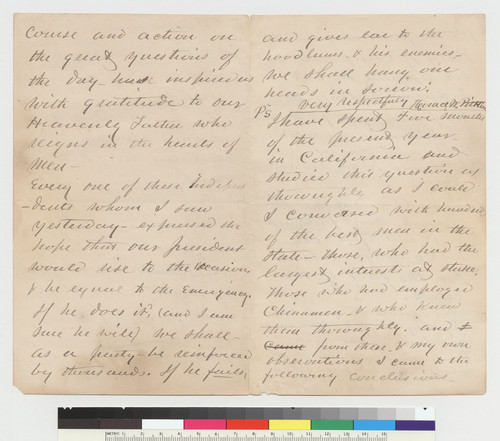 course and action on
the great questions of
the day - has inspired us
with gratitude to our
Heavenly Father who
reigns in the hearts of
men -
Every one of these Indepen
-dents whom I saw
yesterday - expressed the
hope that our president
would rise to the occasion
& be equal to the Emergency.
If he does it, (and I am
sure he will) we shall -
as a party - be reinforced
by thousands. If he fails,
and gives ear to the
hoodlums & his enemies -
we shall hang our
heads in sorrow.
very respectfully
PS I have spent five months
of the present year
in California and
studied this question as
thoroughly as I could
I conversed with hundreds
of the best men in the
State - those, who had the
largest interests at stake.
Those who had employed
Chinamen - & who knew
them thoroughly. and I
Came from these & my own
observations I came to the
following conclusions -